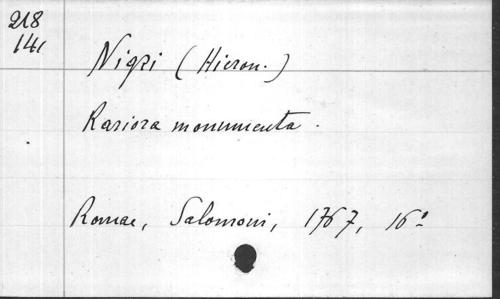 218
141
Nigri (Hieron.)
Rariora monumenta.
Romae, Salomoni, 1767, 16°